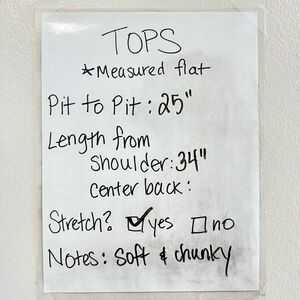 TOPS
*Measured flat
Pit to Pit: 25"
Length from
shoulder: 34"
center back:
Stretch? ☑ yes ☐ no
Notes: Soft & chunky